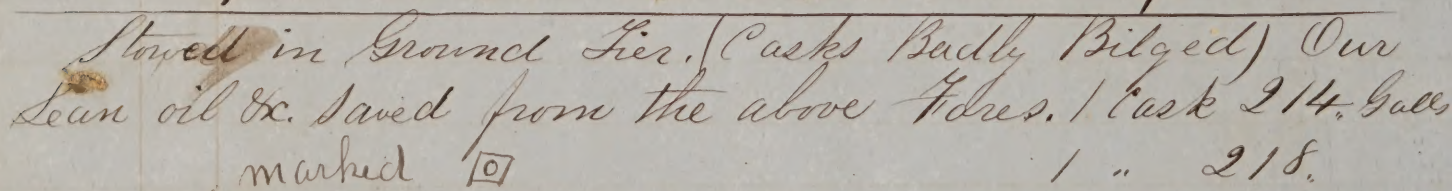 Stowed in Ground Tier. (Casks Badly Bilged) Our
Lean oil &c. saved from the above Fares. 1 Cask 214 „ Galls
marked 1 „ 218 „